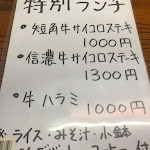 特別ランチ
・短角牛サイコロステーキ
1000円
・信濃牛サイコロステーキ
1300円
・牛ハラミ
1000円
※ライス・みそ汁・小鉢